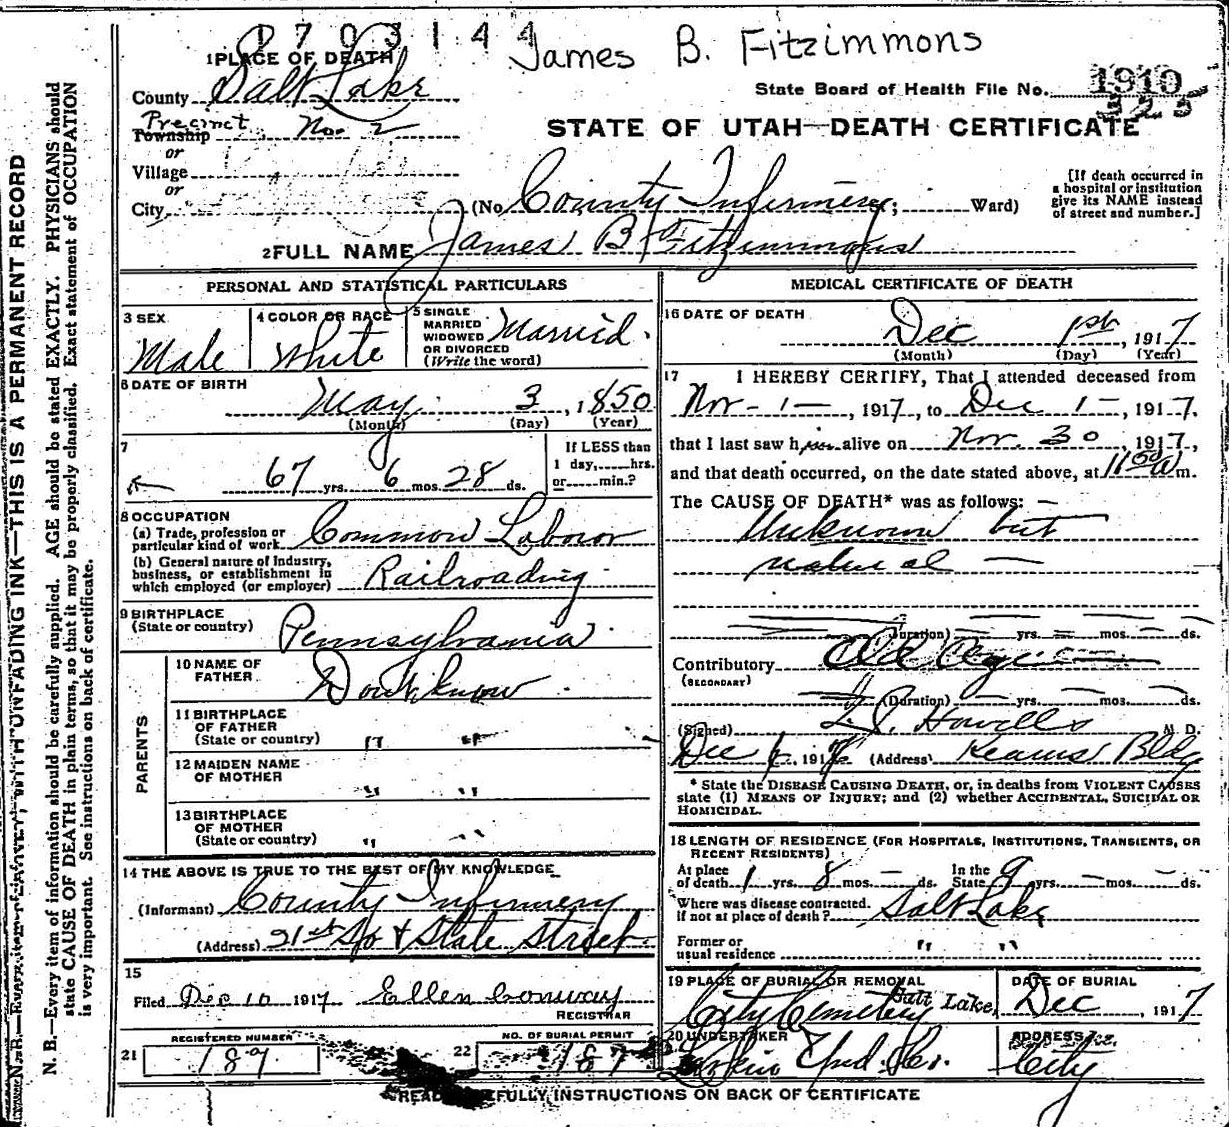 1703144
James B. Fitzimmons
1 PLACE OF DEATH
County Salt Lake
State Board of Health File No. 1910
325
Precinct
Township No. 2
or
Village
or
City
STATE OF UTAH—DEATH CERTIFICATE
(No. County Infirmery; Ward)
[If death occurred in
a hospital or institution
give its NAME instead
of street and number.]
2 FULL NAME James B Fitzimmons
PERSONAL AND STATISTICAL PARTICULARS
3 SEX
Male
4 COLOR OR RACE
White
5 SINGLE
MARRIED
WIDOWED
OR DIVORCED
(Write the word)
Married.
6 DATE OF BIRTH
May 3, 1850
(Month) (Day) (Year)
7
67 yrs. 6 mos. 28 ds.
If LESS than
1 day, hrs.
or min.?
8 OCCUPATION
(a) Trade, profession or
particular kind of work Common Labour
(b) General nature of Industry,
business, or establishment in
which employed (or employer) Railroading
9 BIRTHPLACE
(State or country) Pennsylvania.
PARENTS
10 NAME OF
FATHER Dont know.
11 BIRTHPLACE
OF FATHER
(State or country) " "
12 MAIDEN NAME
OF MOTHER " "
13 BIRTHPLACE
OF MOTHER
(State or country) " "
14 THE ABOVE IS TRUE TO THE BEST OF MY KNOWLEDGE
(Informant) County Infirmery
(Address) 21st So & State Street.
15
Filed Dec 10 1917 Ellen Conway
REGISTRAR
21 REGISTERED NUMBER
189
22 NO. OF BURIAL PERMIT
187
MEDICAL CERTIFICATE OF DEATH
16 DATE OF DEATH
Dec 1st, 1917
(Month) (Day) (Year)
17 I HEREBY CERTIFY, That I attended deceased from
Nov - 1 —, 1917, to Dec 1 —, 1917,
that I last saw him alive on Nov. 30, 1917,
and that death occurred, on the date stated above, at 11 50 a m.
The CAUSE OF DEATH* was as follows: —
Unknown but
natural —
(Duration) — yrs. — mos. — ds.
Contributory Old Age
(SECONDARY)
(Duration) — yrs. — mos. — ds.
(Signed) Howells M. D.
Dec , 191 (Address) Kearns Bldg
* State the DISEASE CAUSING DEATH, or, in deaths from VIOLENT CAUSES
state (1) MEANS OF INJURY; and (2) whether ACCIDENTAL, SUICIDAL OR
HOMICIDAL.
18 LENGTH OF RESIDENCE (FOR HOSPITALS, INSTITUTIONS, TRANSIENTS, OR
RECENT RESIDENTS)
At place
of death 1 yrs. 8 mos. — ds. In the
State 9 yrs. — mos. — ds.
Where was disease contracted.
if not at place of death? Salt Lake
Former or
usual residence " "
19 PLACE OF BURIAL OR REMOVAL
City Cemetery Salt Lake
DATE OF BURIAL
Dec , 1917
20 UNDERTAKER
Larkin Und. Co.
ADDRESS
City
READ CAREFULLY INSTRUCTIONS ON BACK OF CERTIFICATE
WITH UNFADING INK—THIS IS A PERMANENT RECORD
N. B.—Every item of information should be carefully supplied. AGE should be stated EXACTLY. PHYSICIANS should
state CAUSE OF DEATH in plain terms, so that it may be properly classified. Exact statement of OCCUPATION
is very important. See instructions on back of certificate.